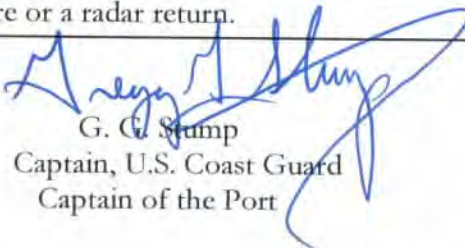 re or a radar return.
G. G. Stump
Captain, U.S. Coast Guard
Captain of the Port